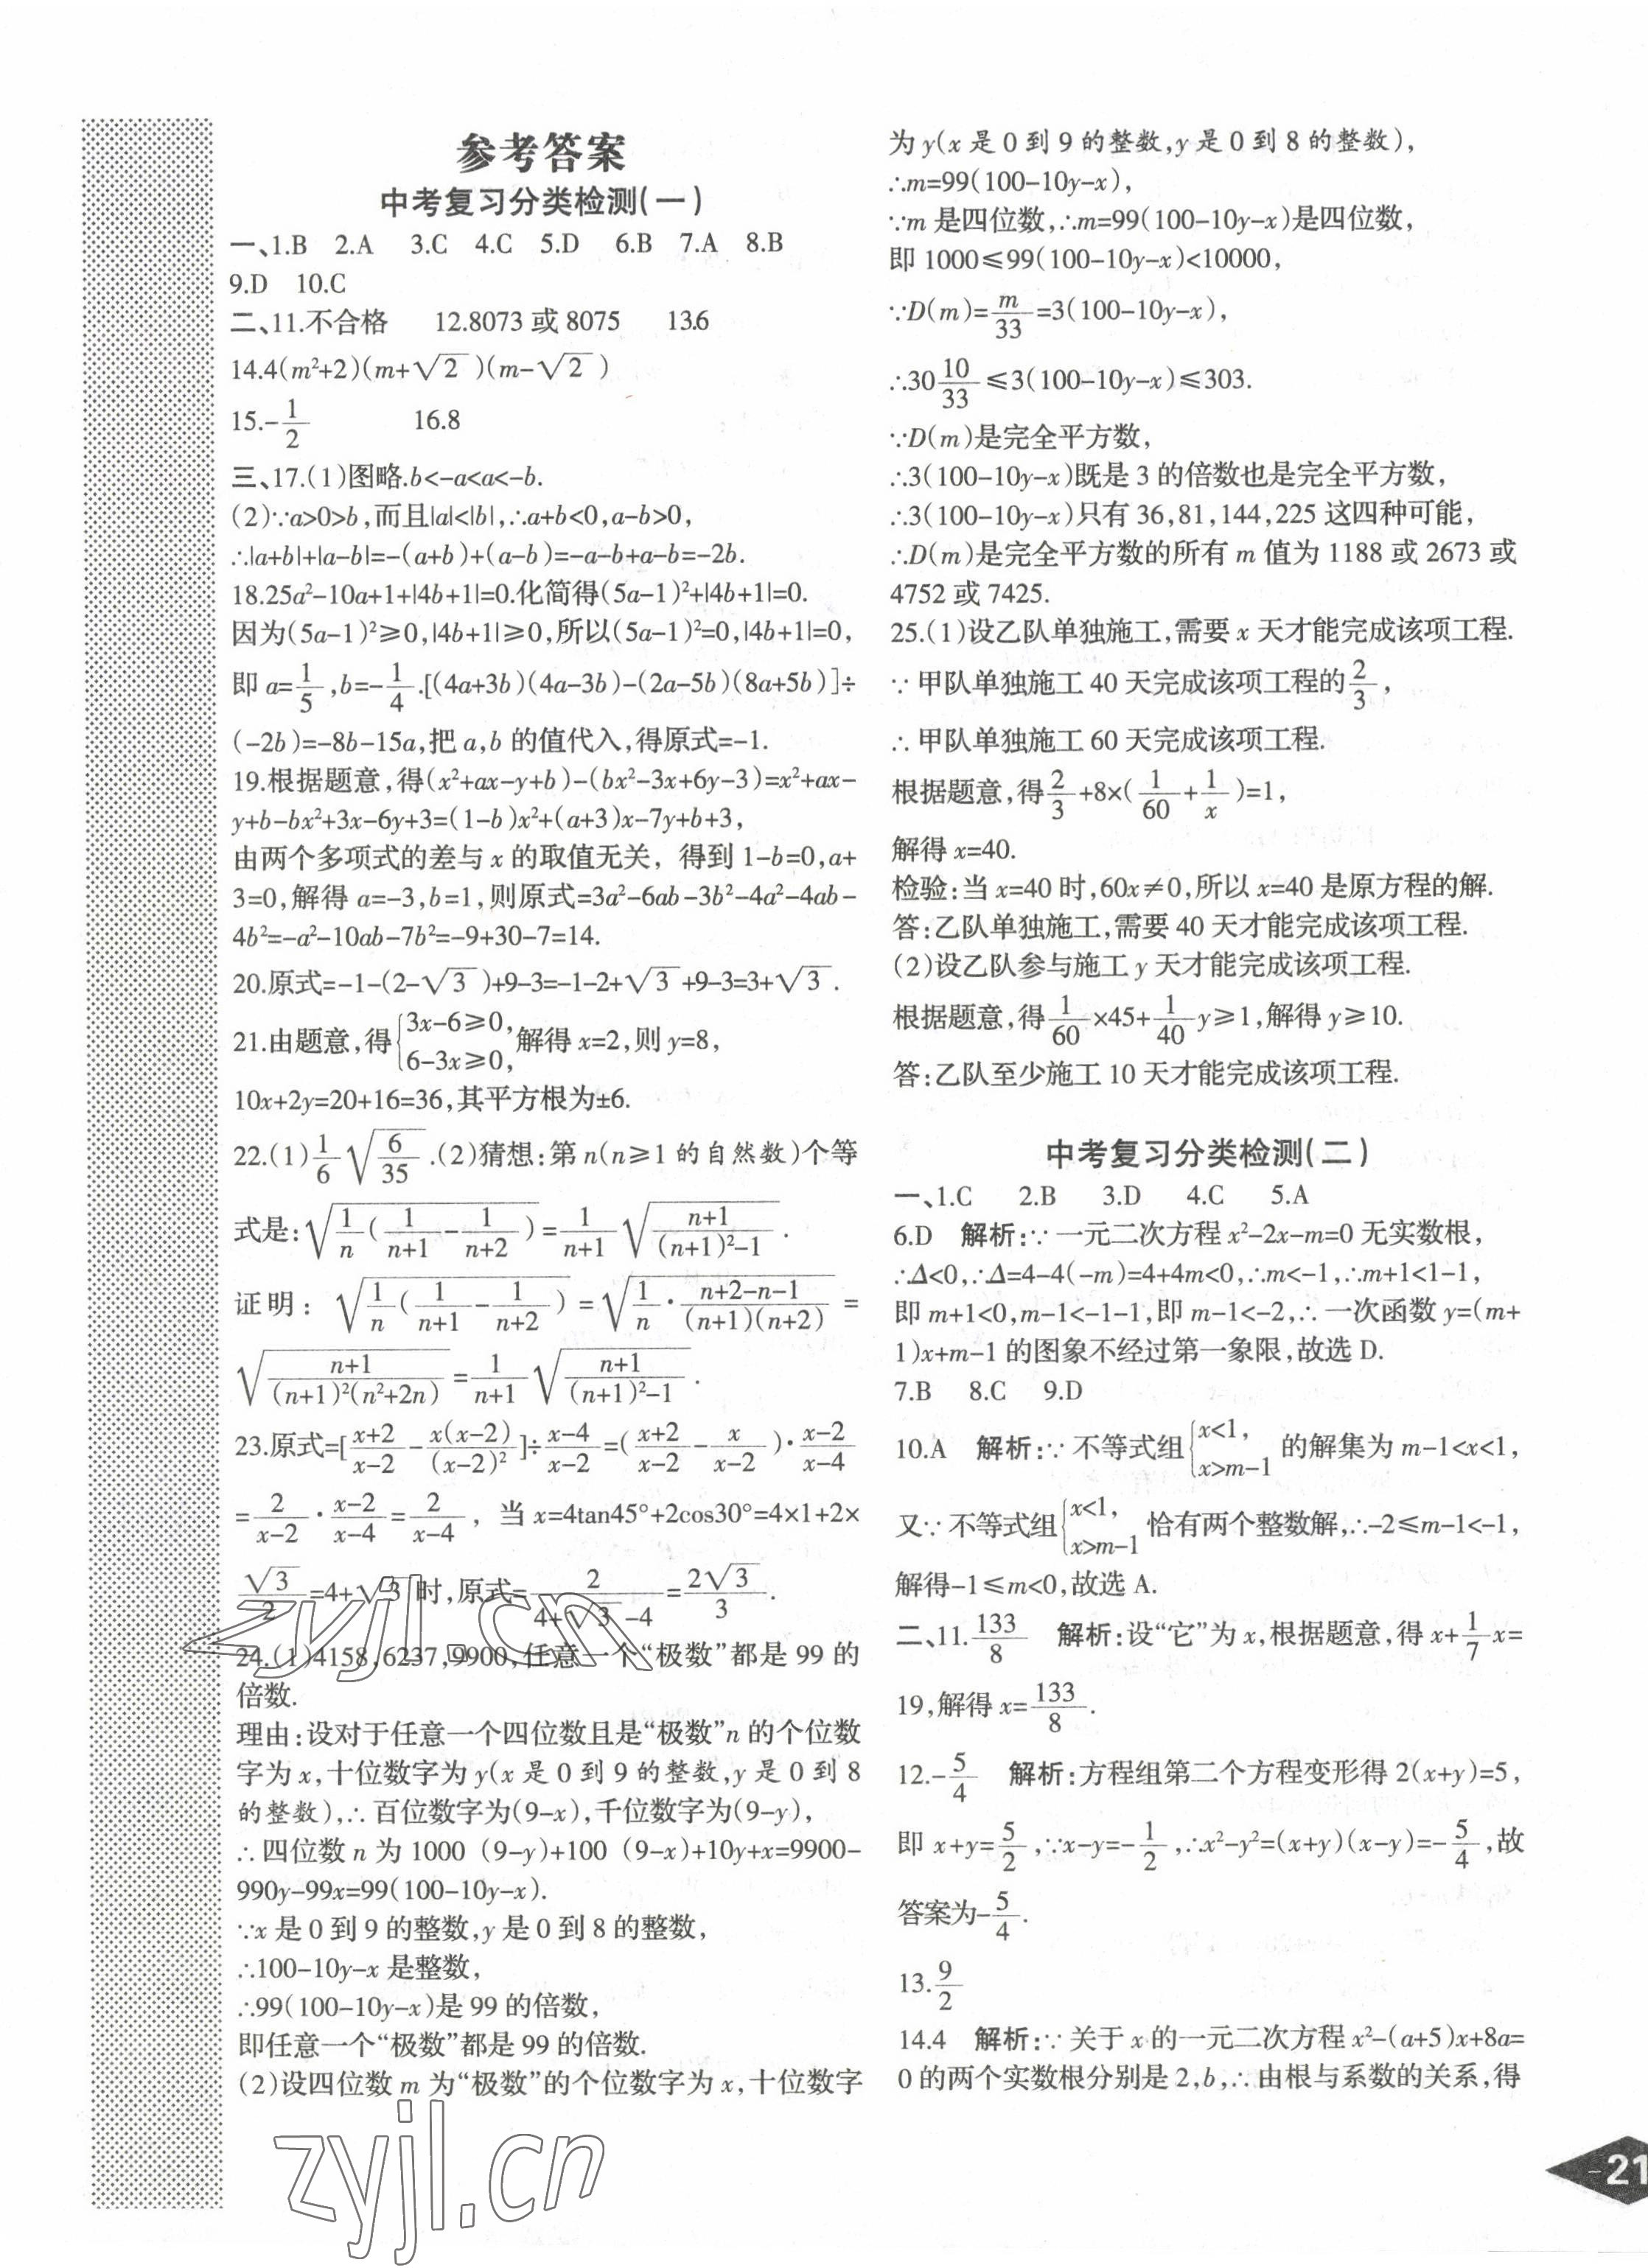 参考答案
中考复习分类检测(一)
一、1.B 2.A 3.C 4.C 5.D 6.B 7.A 8.B
9.D 10.C
二、11.不合格 12.8073或8075 13.6
14.4(m²+2)(m+√2)(m-√2)
15.-1/2 16.8
三、17.(1)图略.b<-a<a<-b.
(2)∵a>0>b,而且|a|<|b|,∴a+b<0,a-b>0,
∴|a+b|+|a-b|=-(a+b)+(a-b)=-a-b+a-b=-2b.
18.25a²-10a+1+|4b+1|=0.化简得(5a-1)²+|4b+1|=0.
因为(5a-1)²≥0,|4b+1|≥0,所以(5a-1)²=0,|4b+1|=0,
即a=1/5,b=-1/4.[(4a+3b)(4a-3b)-(2a-5b)(8a+5b)]÷
(-2b)=-8b-15a,把a,b的值代入,得原式=-1.
19.根据题意,得(x²+ax-y+b)-(bx²-3x+6y-3)=x²+ax-
y+b-bx²+3x-6y+3=(1-b)x²+(a+3)x-7y+b+3,
由两个多项式的差与x的取值无关,得到1-b=0,a+
3=0,解得a=-3,b=1,则原式=3a²-6ab-3b²-4a²-4ab-
4b²=-a²-10ab-7b²=-9+30-7=14.
20.原式=-1-(2-√3)+9-3=-1-2+√3+9-3=3+√3.
21.由题意,得{3x-6≥0,6-3x≥0,解得x=2,则y=8,
10x+2y=20+16=36,其平方根为±6.
22.(1)1/6√(6/35).(2)猜想:第n(n≥1的自然数)个等
式是:√(1/n(1/(n+1)-1/(n+2)))=1/(n+1)√((n+1)/((n+1)²-1)).
证明:√(1/n(1/(n+1)-1/(n+2)))=√(1/n·(n+2-n-1)/((n+1)(n+2)))=
√((n+1)/((n+1)²(n²+2n)))=1/(n+1)√((n+1)/((n+1)²-1)).
23.原式=[(x+2)/(x-2)-x(x-2)/(x-2)²]÷(x-4)/(x-2)=((x+2)/(x-2)-x/(x-2))·(x-2)/(x-4)
=2/(x-2)·(x-2)/(x-4)=2/(x-4),当x=4tan45°+2cos30°=4×1+2×
√3/2=4+√3时,原式=2/(4+√3-4)=2√3/3.
24.(1)4158,6237,9900,任意一个“极数”都是99的
倍数.
理由:设对于任意一个四位数且是“极数”n的个位数
字为x,十位数字为y(x是0到9的整数,y是0到8
的整数),∴百位数字为(9-x),千位数字为(9-y),
∴四位数n为1000(9-y)+100(9-x)+10y+x=9900-
990y-99x=99(100-10y-x).
∵x是0到9的整数,y是0到8的整数,
∴100-10y-x是整数,
∴99(100-10y-x)是99的倍数,
即任意一个“极数”都是99的倍数.
(2)设四位数m为“极数”的个位数字为x,十位数字
为y(x是0到9的整数,y是0到8的整数),
∴m=99(100-10y-x),
∵m是四位数,∴m=99(100-10y-x)是四位数,
即1000≤99(100-10y-x)<10000,
∵D(m)=m/33=3(100-10y-x),
∴30 10/33≤3(100-10y-x)≤303.
∵D(m)是完全平方数,
∴3(100-10y-x)既是3的倍数也是完全平方数,
∴3(100-10y-x)只有36,81,144,225这四种可能,
∴D(m)是完全平方数的所有m值为1188或2673或
4752或7425.
25.(1)设乙队单独施工,需要x天才能完成该项工程.
∵甲队单独施工40天完成该项工程的2/3,
∴甲队单独施工60天完成该项工程.
根据题意,得2/3+8×(1/60+1/x)=1,
解得x=40.
检验:当x=40时,60x≠0,所以x=40是原方程的解.
答:乙队单独施工,需要40天才能完成该项工程.
(2)设乙队参与施工y天才能完成该项工程.
根据题意,得1/60×45+1/40y≥1,解得y≥10.
答:乙队至少施工10天才能完成该项工程.
中考复习分类检测(二)
一、1.C 2.B 3.D 4.C 5.A
6.D 解析:∵一元二次方程x²-2x-m=0无实数根,
∴Δ<0,∴Δ=4-4(-m)=4+4m<0,∴m<-1,∴m+1<1-1,
即m+1<0,m-1<-1-1,即m-1<-2,∴一次函数y=(m+
1)x+m-1的图象不经过第一象限,故选D.
7.B 8.C 9.D
10.A 解析:∵不等式组{x<1,x>m-1的解集为m-1<x<1,
又∵不等式组{x<1,x>m-1恰有两个整数解,∴-2≤m-1<-1,
解得-1≤m<0,故选A.
二、11.133/8 解析:设“它”为x,根据题意,得x+1/7x=
19,解得x=133/8.
12.-5/4 解析:方程组第二个方程变形得2(x+y)=5,
即x+y=5/2,∵x-y=-1/2,∴x²-y²=(x+y)(x-y)=-5/4,故
答案为-5/4.
13.9/2
14.4 解析:∵关于x的一元二次方程x²-(a+5)x+8a=
0的两个实数根分别是2,b,∴由根与系数的关系,得
-21
zyjl.cn
zyjl.cn